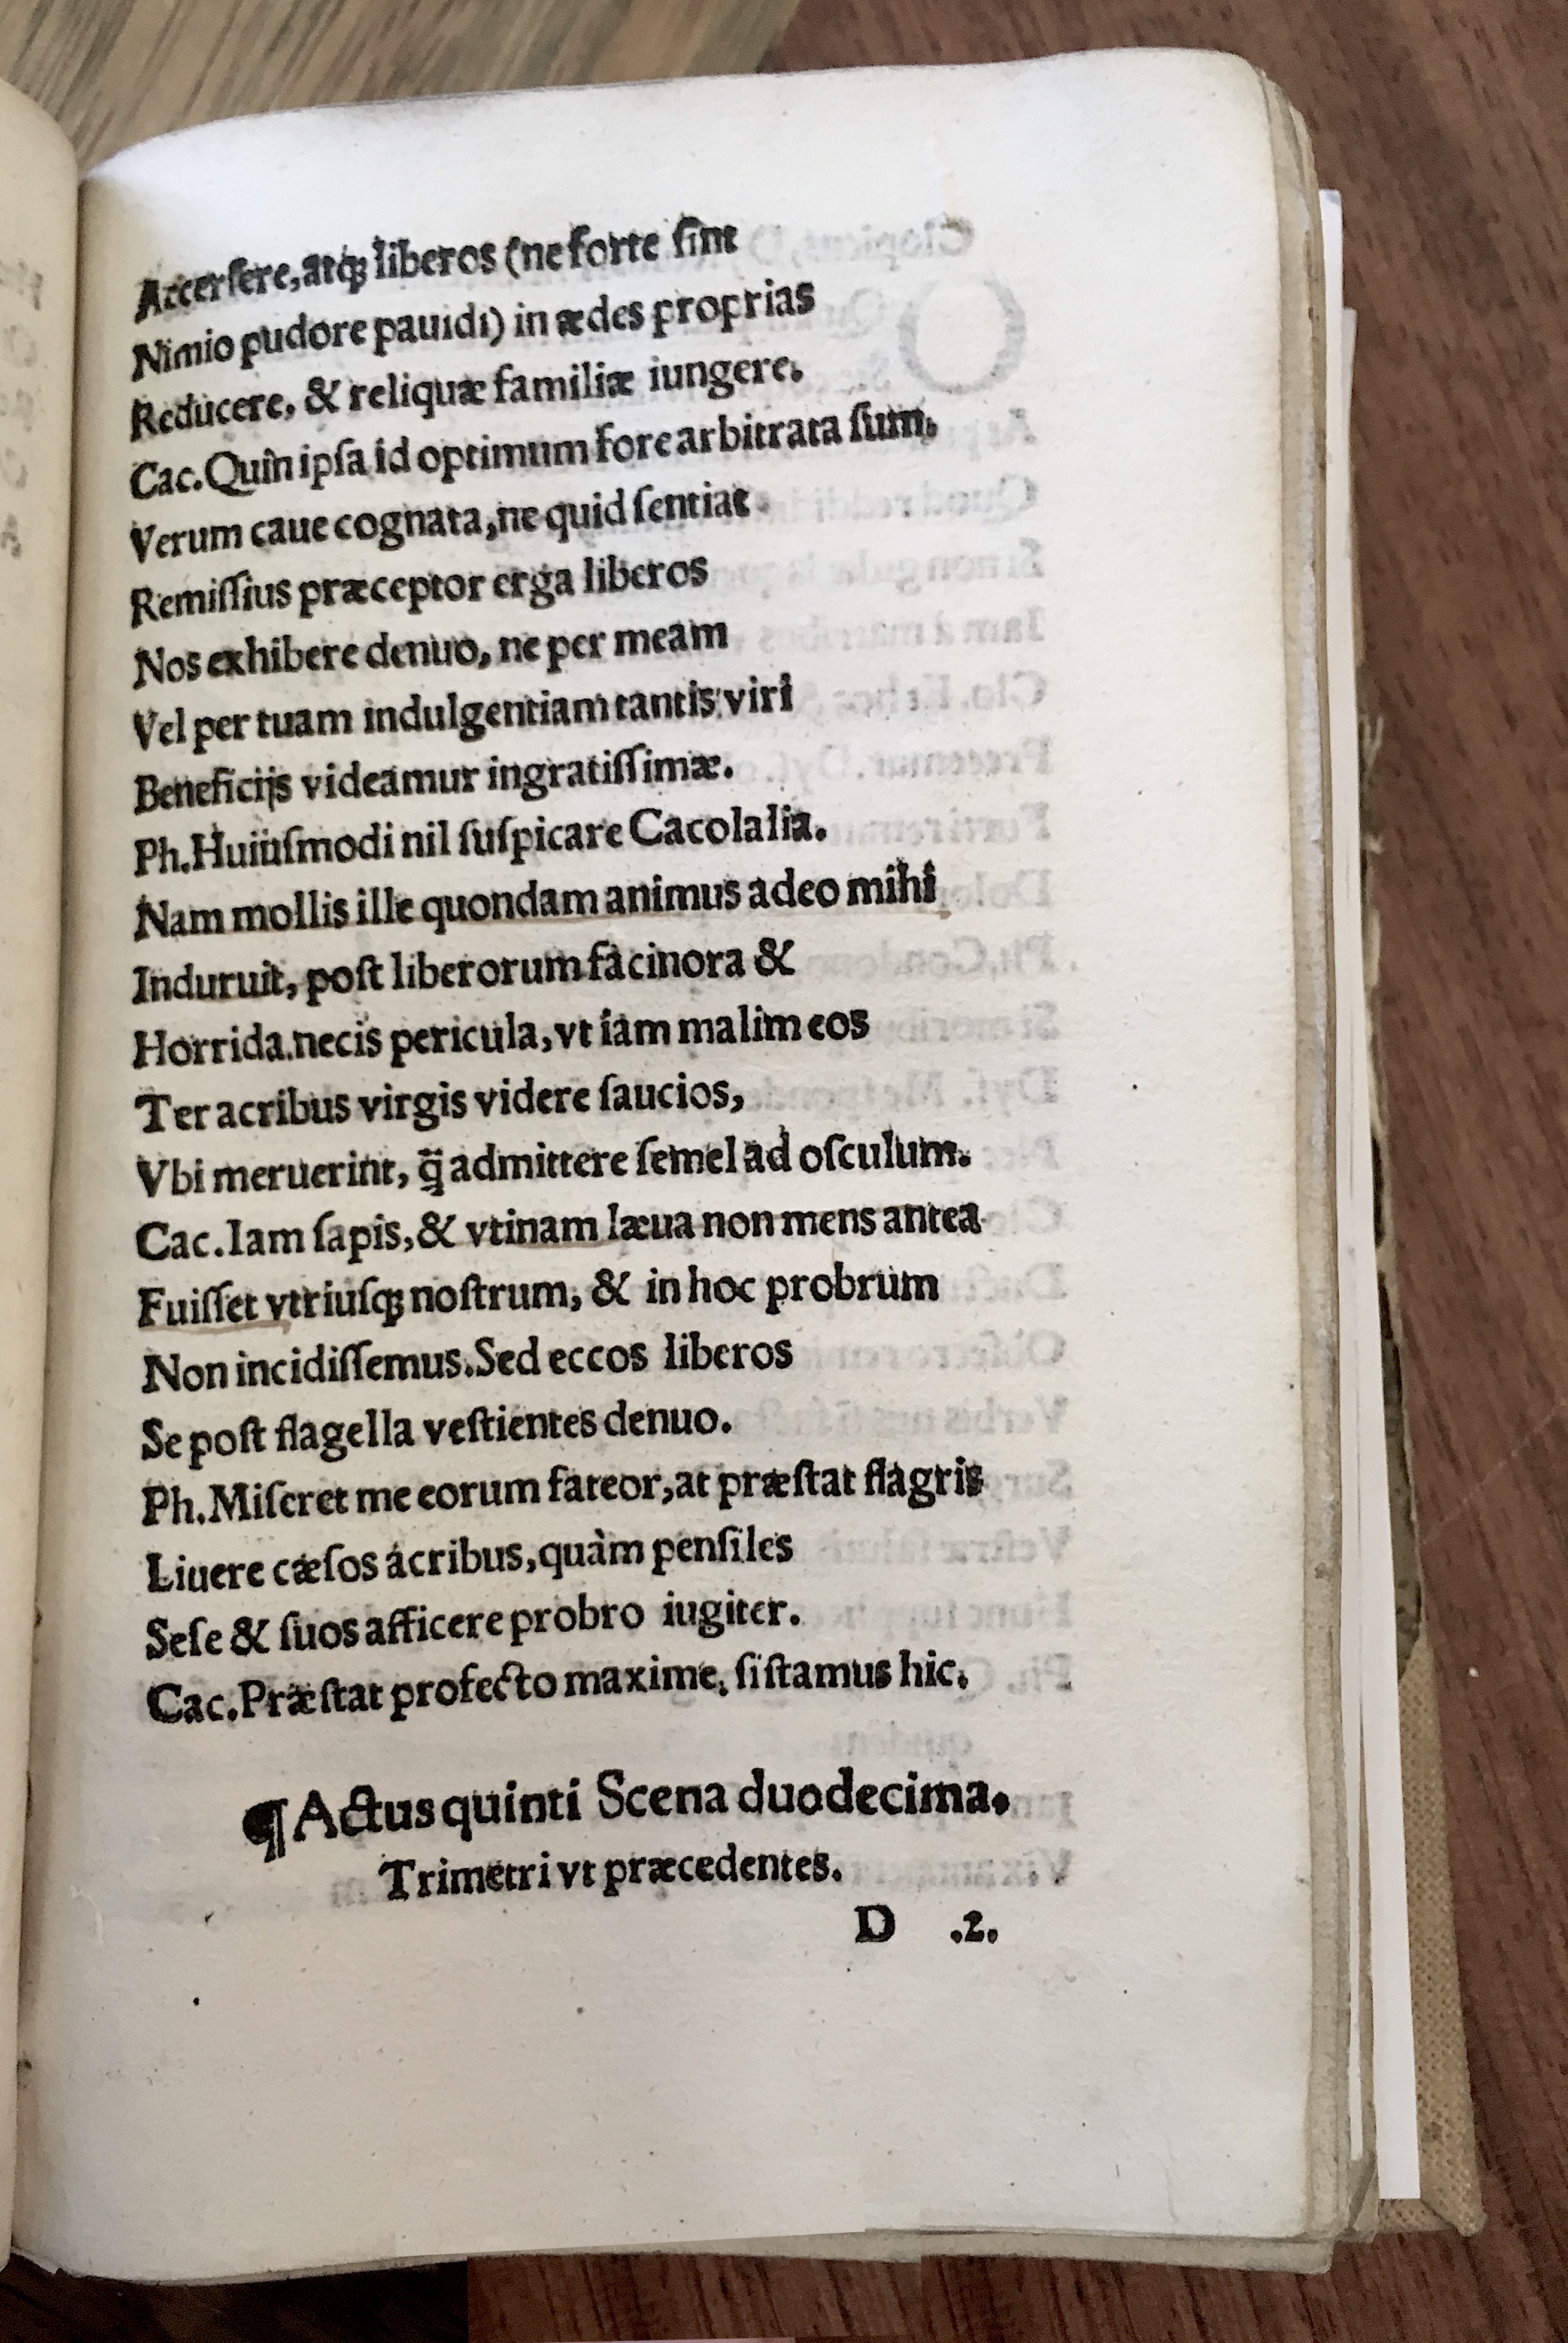 Accersere, atqꝫ liberos (ne forte ſint
Nimio pudore pauidi) in ædes proprias
Reducere, & reliquæ familiæ iungere.
Cac. Quin ipſa id optimum fore arbitrata ſum.
Verum caue cognata, ne quid ſentiat
Remiſſius præceptor erga liberos
Nos exhibere denuo, ne per meam
Vel per tuam indulgentiam tantis viri
Beneficijs videamur ingratiſſimæ.
Ph. Huiuſmodi nil ſuſpicare Cacolalia.
Nam mollis ille quondam animus adeo mihi
Induruit, poſt liberorum facinora &
Horrida necis pericula, vt iam malim eos
Ter acribus virgis videre ſaucios,
Vbi meruerint, q̃ admittere ſemel ad oſculum.
Cac. Iam ſapis, & vtinam læua non mens antea
Fuiſſet vtriuſqꝫ noſtrum, & in hoc probrum
Non incidiſſemus. Sed eccos liberos
Se poſt flagella veſtientes denuo.
Ph. Miſeret me eorum fateor, at præſtat flagris
Liuere cæſos acribus, quàm penſiles
Seſe & ſuos afficere probro iugiter.
Cac. Præſtat profecto maxime, ſiſtamus hic.
¶ Actus quinti Scena duodecima.
Trimetri vt præcedentes.
D .2.